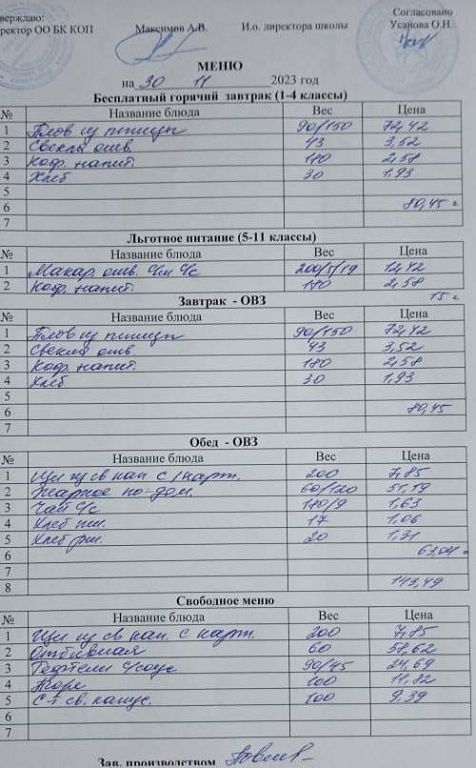 тверждаю: Согласовано
ректор ОО БК КОП Максимов А.В. И.о. директора школы Усанова О.Н.
МЕНЮ
на 30 11 2023 год
Бесплатный горячий завтрак (1-4 классы)
№ Название блюда Вес Цена
1 Плов из птицы 90/150 72,42
2 Свекла отв. 43 3,52
3 Коф. напит. 180 2,58
4 Хлеб 30 1,93
5
6 80,45
7
Льготное питание (5-11 классы)
№ Название блюда Вес Цена
1 Макар. отв. с/м с/с 200/5/19 12,42
2 Коф. напит. 180 2,58
15
Завтрак - ОВЗ
№ Название блюда Вес Цена
1 Плов из птицы 90/150 72,42
2 Свекла отв 43 3,52
3 Коф. напит. 180 2,58
4 Хлеб 30 1,93
5
6 80,45
7
Обед - ОВЗ
№ Название блюда Вес Цена
1 Щи из св кап с карт. 200 7,85
2 Жаркое по-дом. 60/120 51,19
3 Чай с/с 180/9 1,63
4 Хлеб пш. 17 1,06
5 Хлеб рж. 20 1,31
6 63,04
7
8 143,49
Свободное меню
№ Название блюда Вес Цена
1 Щи из св кап. с карт. 200 7,85
2 Отбивная 60 58,62
3 Тефтели с/соус 90/45 24,69
4 Пюре 100 11,82
5 С-т св. капус. 100 9.39
6
7
Зав. производством